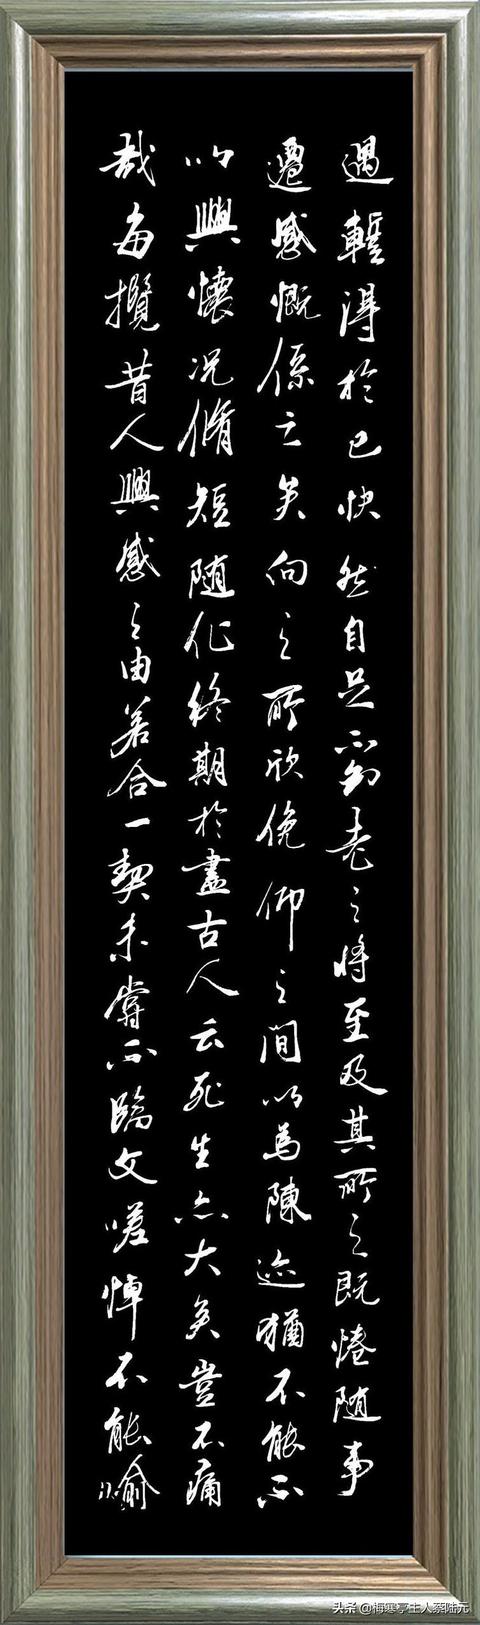 遇暫得於己快然自足不知老之將至及其所之既惓随事
遷感慨係之矣向之所欣俛仰之間以為陳迹猶不能不
以興懷況脩短随化終期於盡古人云死生亦大矣豈不痛
哉每攬昔人興感之由若合一契未嘗不臨文嗟悼不能喻
头条 @梅寒亭主人蔡陆元